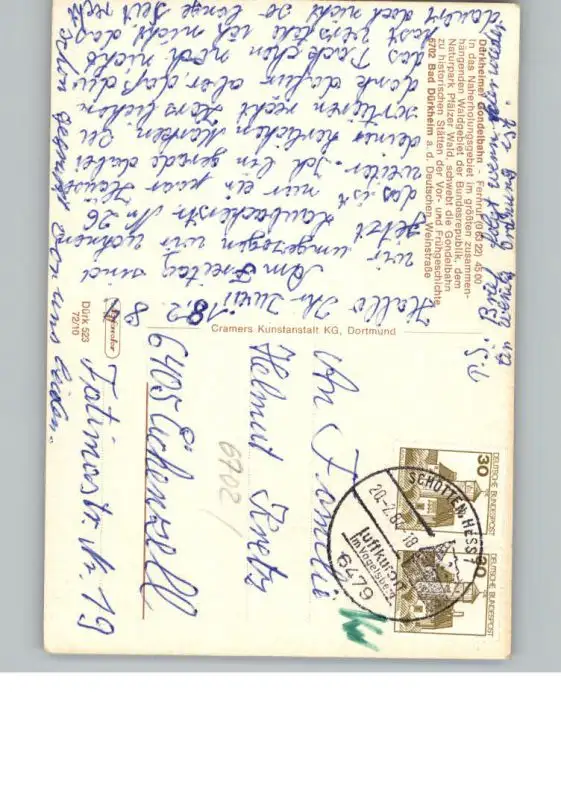 Dürkheimer Gondelbahn - Fernruf (0 63 22) 45 00
In das Naherholungsgebiet im größten zusammen-
hängenden Waldgebiet der Bundesrepublik, dem
Naturpark Pfälzer Wald, schwebt die Gondelbahn
zu historischen Stätten der Vor- und Frühgeschichte
6702 Bad Dürkheim a. d. Deutschen Weinstraße
18.2.8
Hallo Ihr zwei
Am Freitag sind
wir umgezogen wir wohnen
jetzt Laubacherstr. Nr. 26
das ist nur ein paar Häuser
weiter. Ich bin gerade dabei
deine herrlichen Marken zu
sortieren recht herzlichen
dank dafür aber, daß du
das Päckchen noch nicht
hast verstehe ich nicht, das
dauert doch nicht so lange. Seit recht
schön gegrüßt von uns
Dürk 523
72/10
Cramers Kunstanstalt KG, Dortmund
An Familie
Helmut
6405 Eichenzell
Fatimastr. Nr. 19
6702
30
DEUTSCHE BUNDESPOST
30
DEUTSCHE BUNDESPOST
SCHOTTEN, HESS 1
20.-2.8 -18
Luftkurort
im Vogelsberg
6479